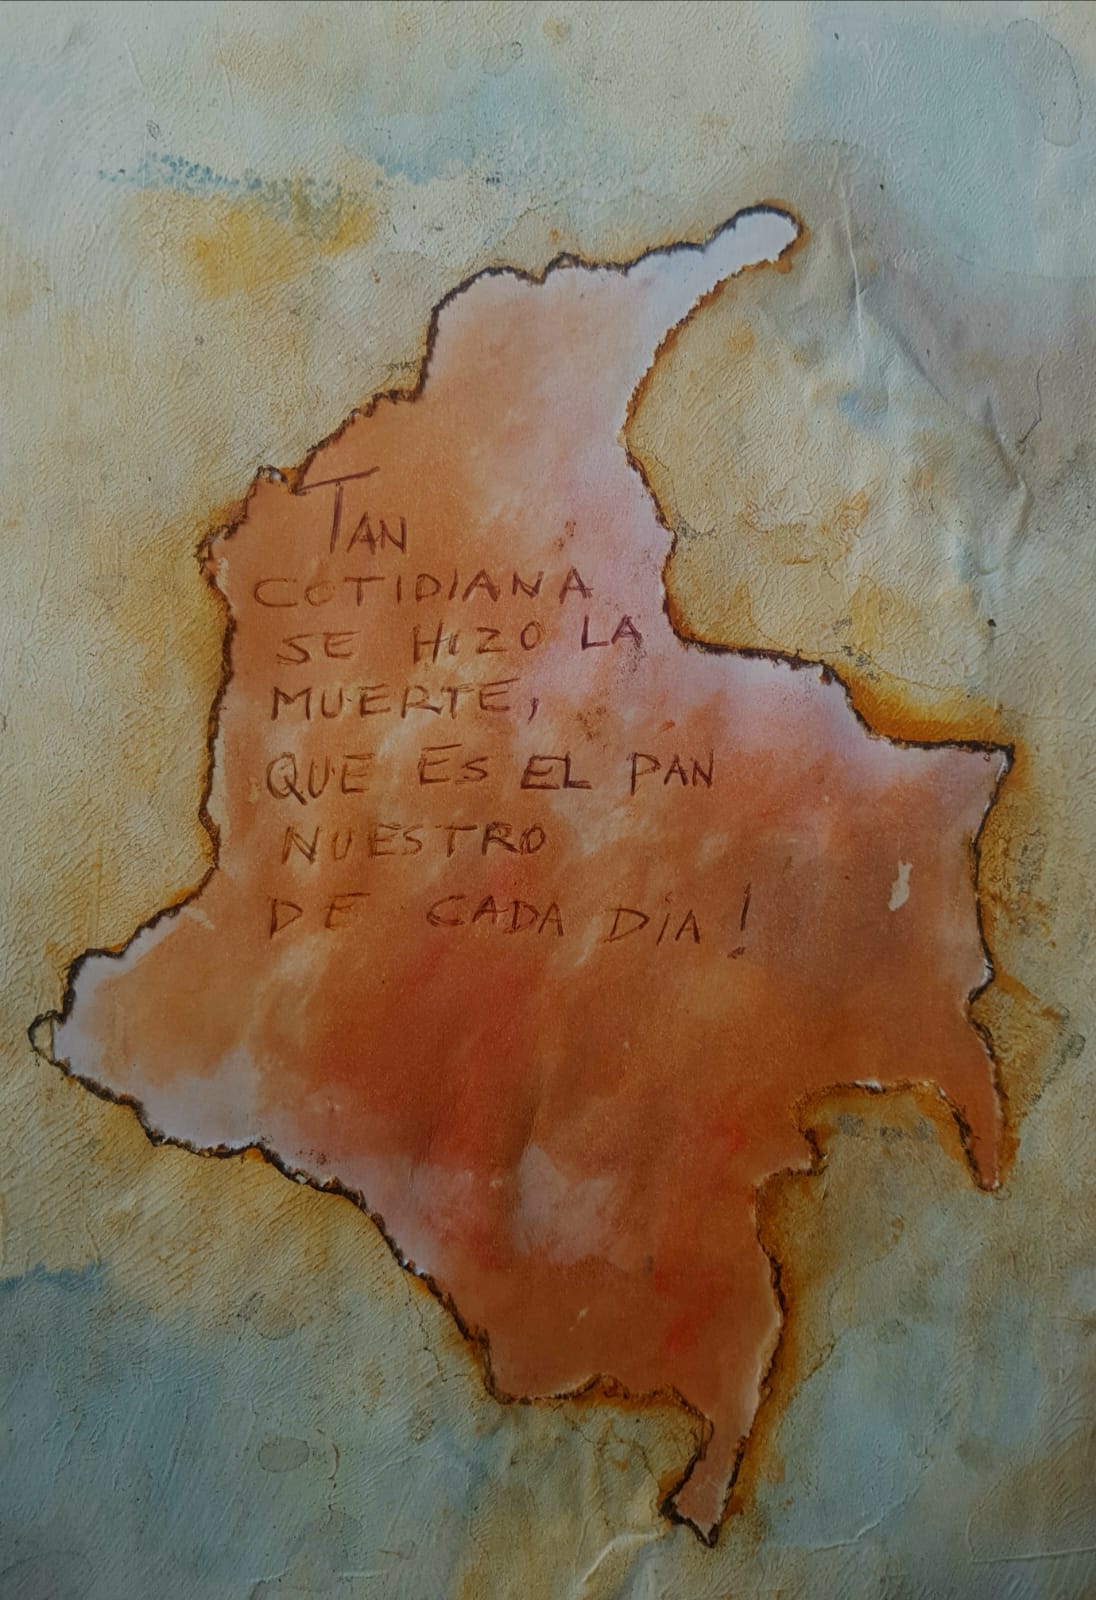 TAN
COTIDIANA
SE HIZO LA
MUERTE,
QUE ES EL PAN
NUESTRO
DE CADA DíA!